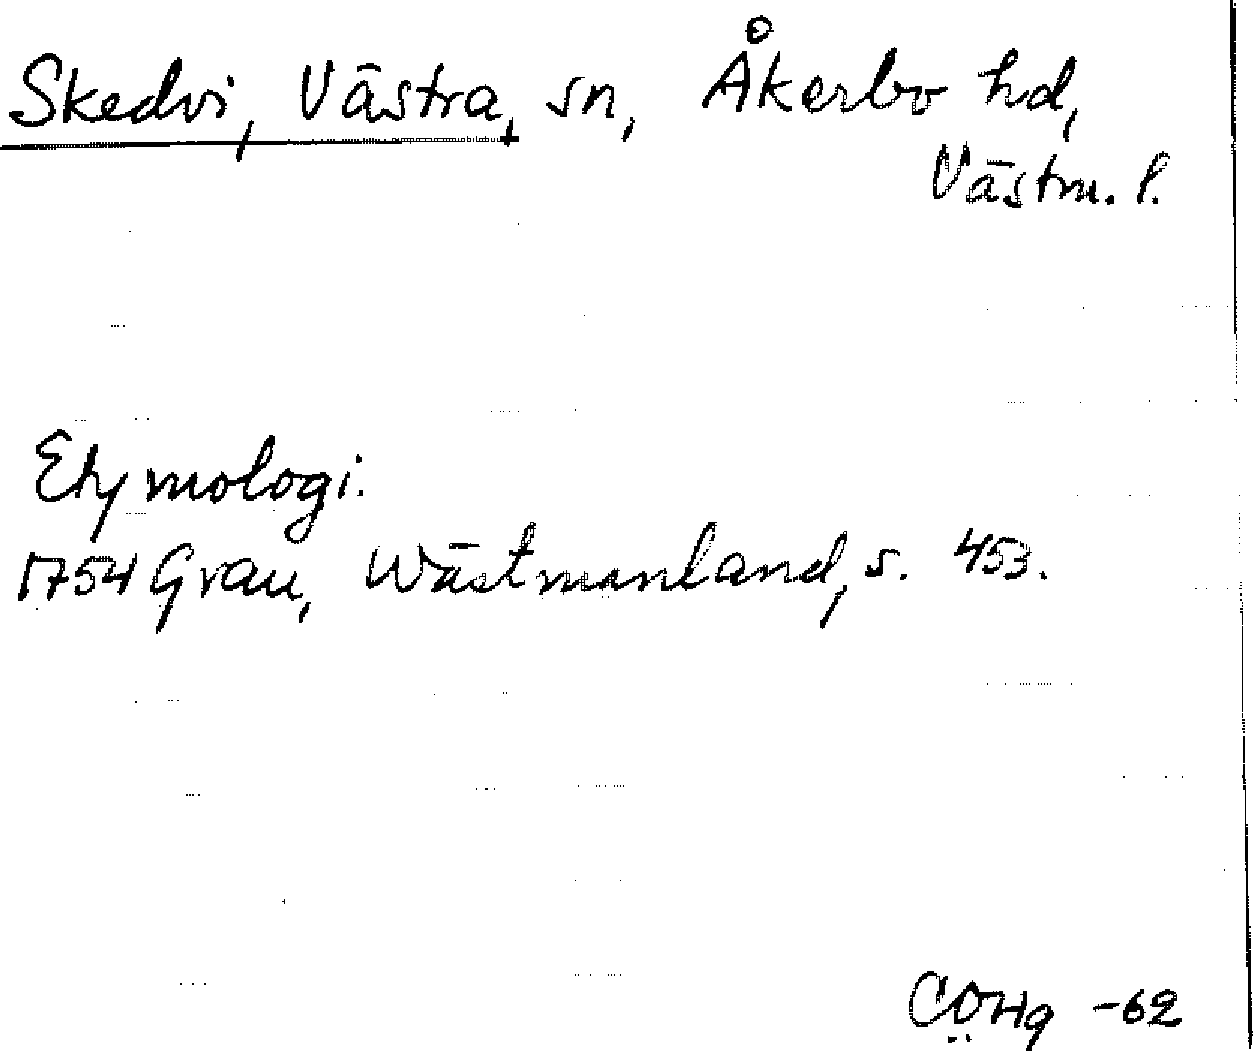 Skedvi, Västra, sn, Åkerbo hd,
Västm. l.
Etymologi.
1754 Grau, Wästmanland, s. 453.
CÖHg -62